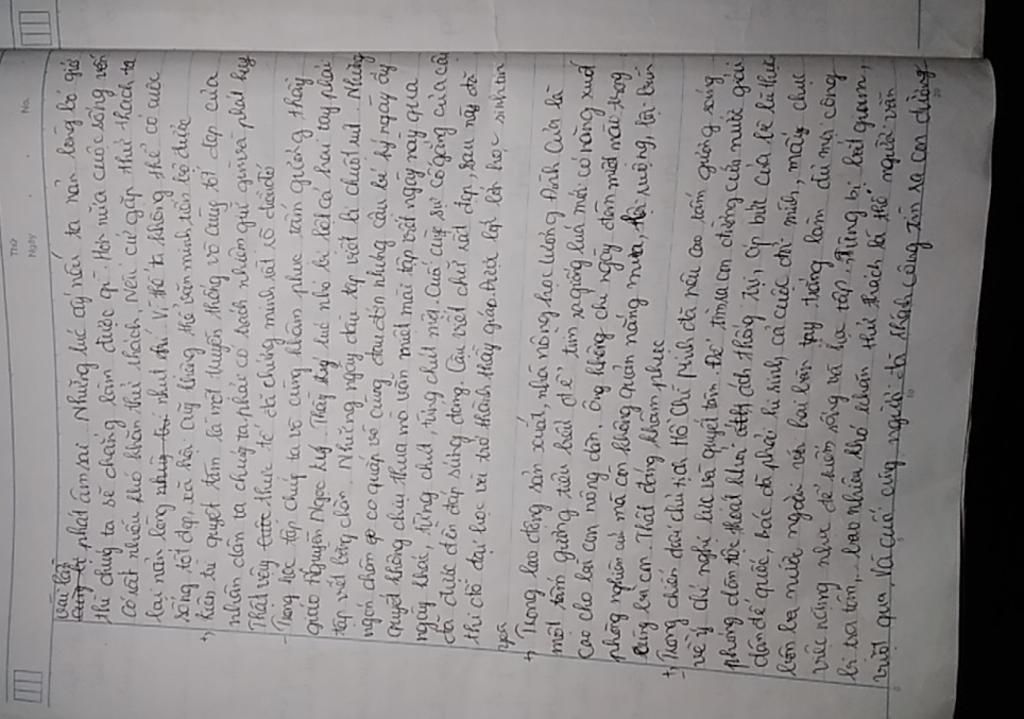 Thứ
Ngày
No.
vấp lắp
phát âm sai Những lúc ấy nếu ta nản lòng bỏ giở
thì chúng ta sẽ chẳng làm được gì. Hơn nữa cuộc sống vốn
có rất nhiều khó khăn thử thách, Nếu cứ gặp thử thách ta
lại nản lòng nhụt chí. Vì thế ta không thể có cuộc
sống tốt đẹp, xã hội cũng không thể văn minh, tiến bộ được
+, kiên trì quyết tâm là một truyền thống vô cùng tốt đẹp của
nhân dân ta chúng ta phải có trách nhiệm giữ gìn và phát huy
Thật vậy thực tế đã chứng minh rất rõ
- Trong học tập chúng ta vô cùng khâm phục tấm gương thầy
giáo Nguyễn Ngọc Ký. Thầy Ký lúc nhỏ bị liệt cả hai tay phải
tập viết bằng chân. Những ngày đầu tập viết bị chuột rút. Những
ngón chân co quắp vô cùng đau đớn nhưng cậu bé ký ngày ấy
quyết không chịu thua mà vẫn miệt mài tập viết ngày này qua
ngày khác, từng chút, từng chút một. Cuối cùng sự cố gắng của cậu
đã được đền đáp xứng đáng. Cậu viết chữ rất đẹp, sau này đã
thi đỗ đại học và trở thành thầy giáo được lớp lớp học sinh tin
yêu
+, Trong lao động sản xuất, nhà nông học Lương Đình Của là
một tấm gương tiêu biểu để tìm ra giống lúa mới có năng suất
cao cho bà con nông dân, ông không chỉ ngày đêm miệt mài trong
phòng nghiên cứu mà còn không quản nắng mưa, ruộng, lội bùn
cùng bà con. Thật đáng khâm phục
+, Trong chiến đấu chủ tịch Hồ Chí Minh đã nêu cao tấm gương sáng
về ý chí nghị lực và quyết tâm. Để tìm ra con đường cứu nước giải
phóng dân tộc thoát khỏi ách thống trị, áp bức của bè lũ thực
dân đế quốc, bác đã phải hi sinh, cả cuộc đời mình, mấy chục
năm bôn ba nước ngoài với hai bàn tay trắng làm đủ mọi công
việc nặng nhọc để kiếm sống và học tập. Từng bị bắt giam,
bị tra tấn,.. bao nhiêu khó khăn thử thách là thế người vẫn
vượt qua và cuối cùng người đã thành công tìm ra con đường